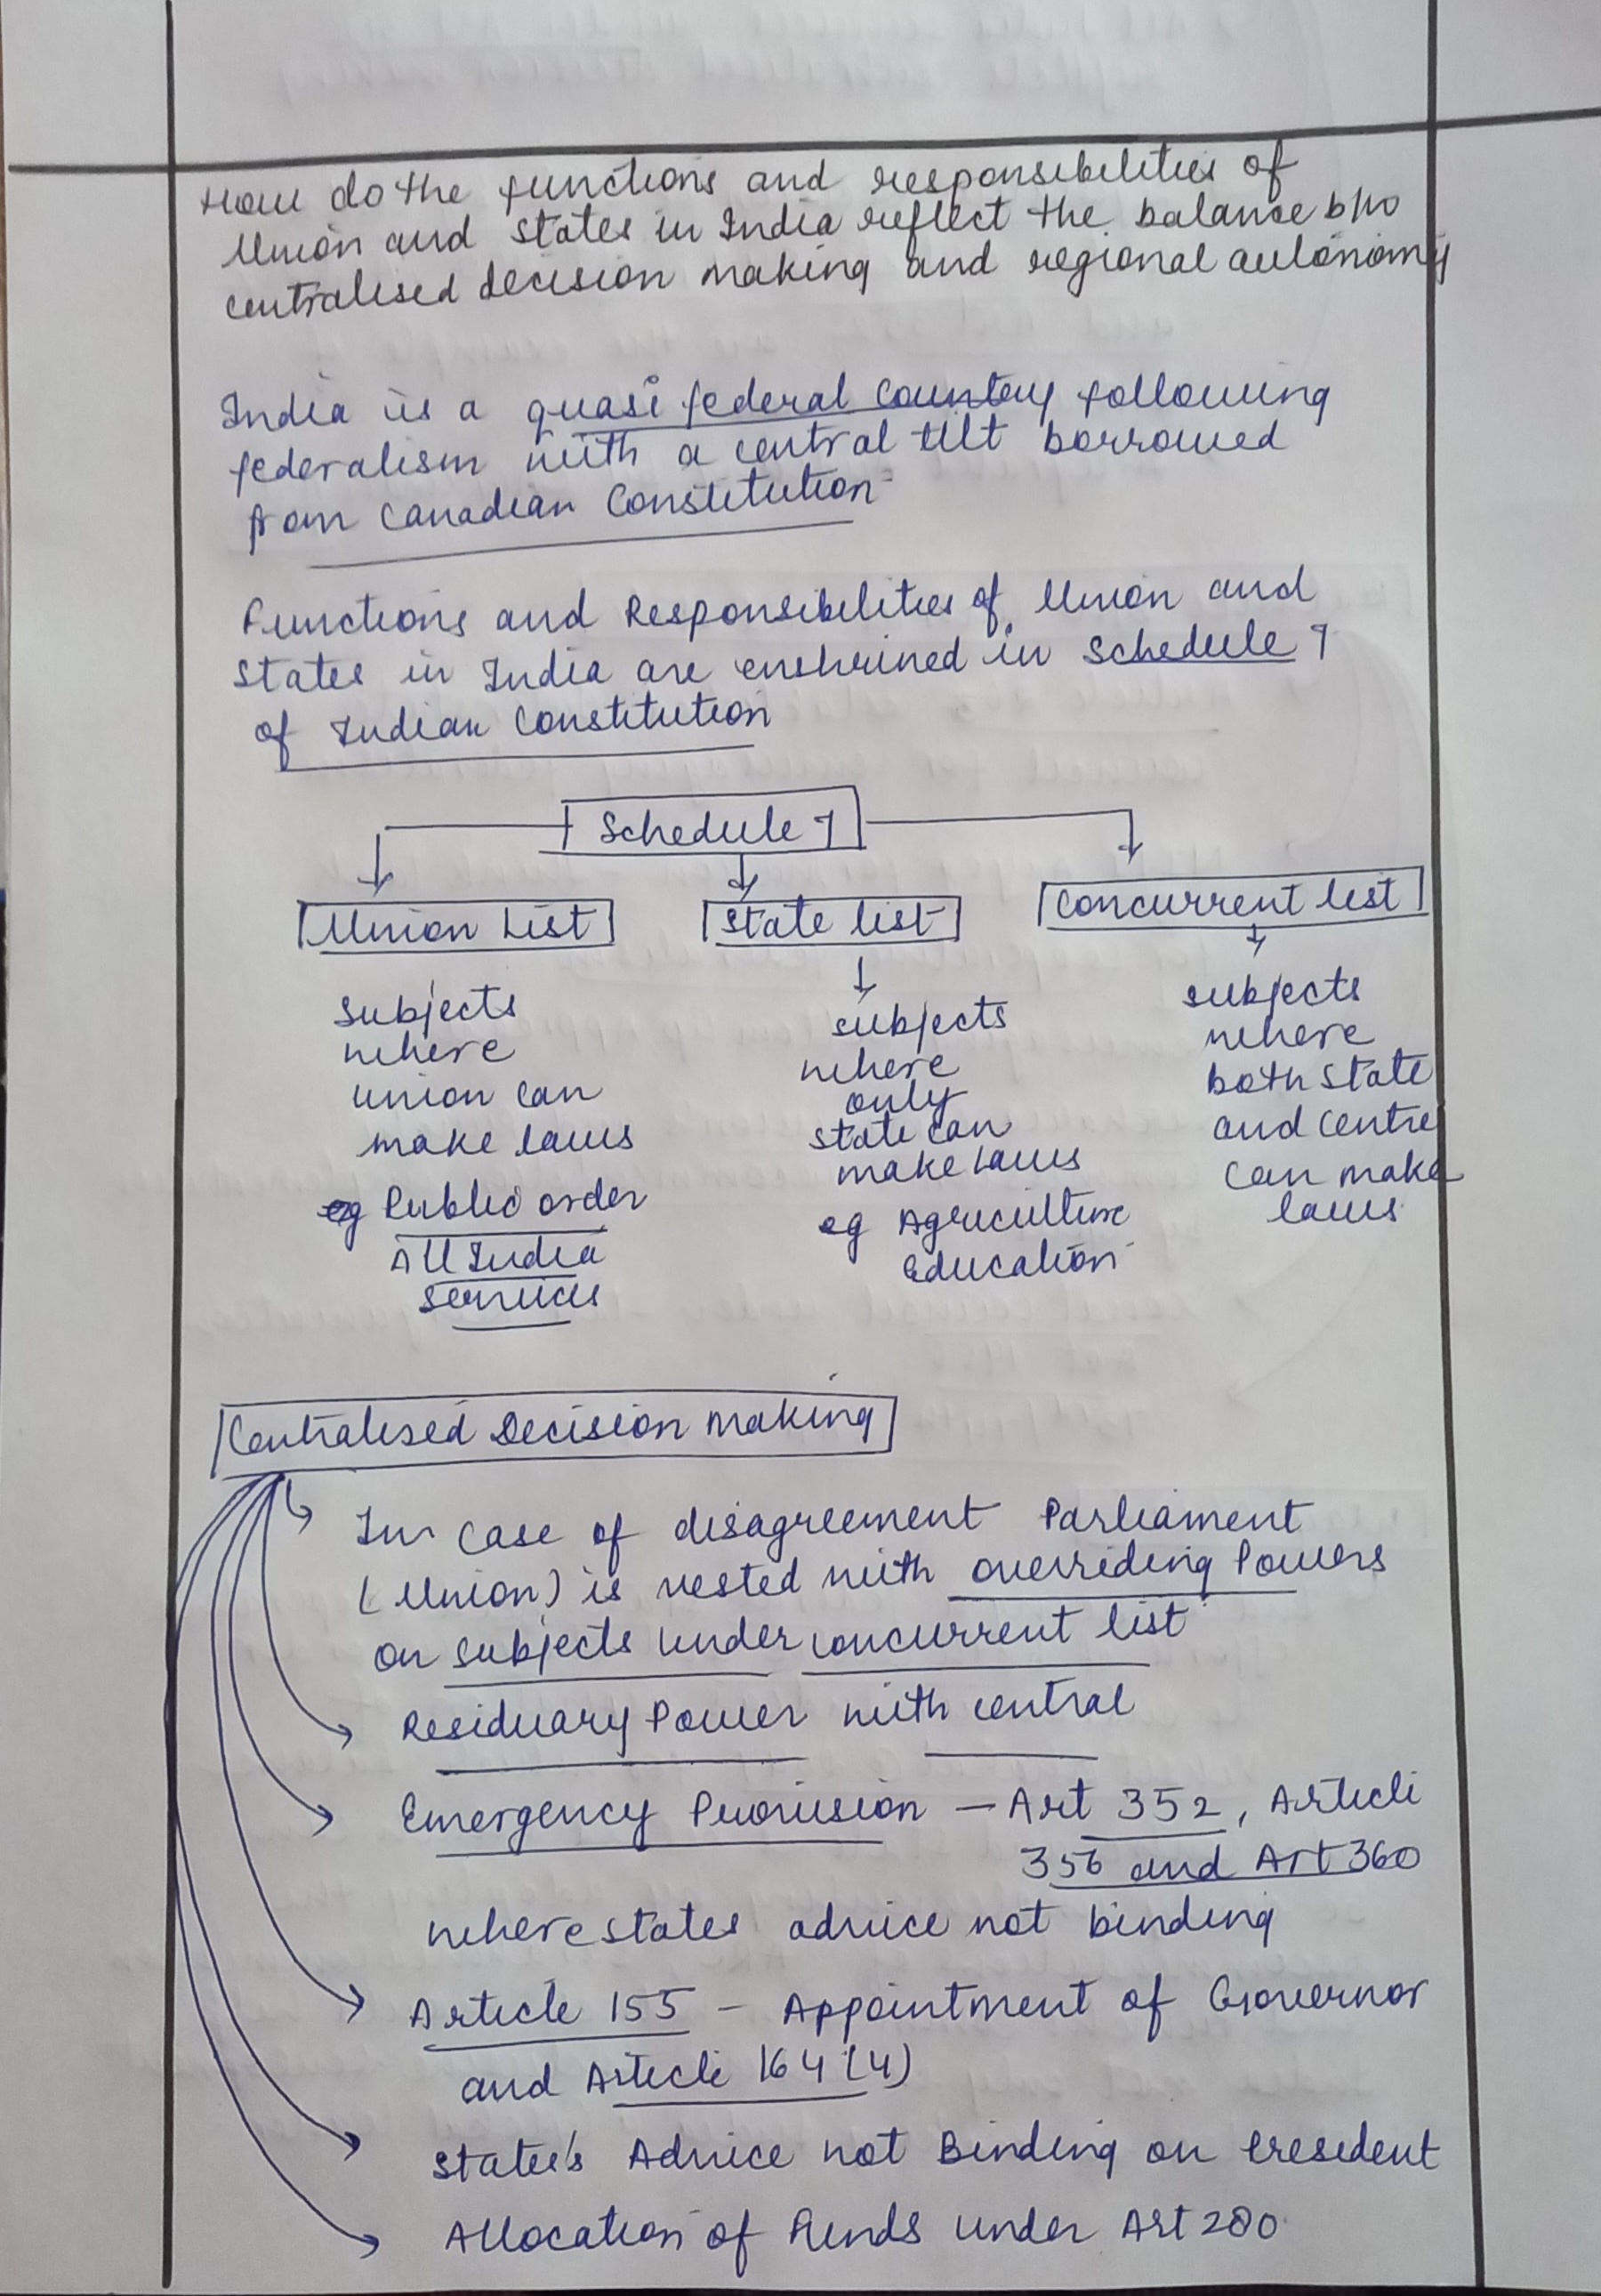 How do the functions and responsibilities of
Union and states in India reflect the balance b/w
centralised decision making and regional autonomy
India is a quasi federal country following
federalism with a central tilt borrowed
from Canadian Constitution
Functions and Responsibilities of Union and
states in India are enshrined in Schedule 7
of Indian Constitution
Schedule 7
Union List
State list
Concurrent list
Subjects
where
union can
make laws
eg Public order
All India
services
subjects
where
only
state can
make laws
eg Agriculture
Education
subjects
where
both state
and centre
can make
laws
Centralised Decision making
In case of disagreement Parliament
(Union) is vested with overriding Powers
on subjects under concurrent list
Residuary Power with central
Emergency Provision – Art 352, Article
356 and Art 360
where states advice not binding
Article 155 – Appointment of Governor
and Article 164(4)
State's Advice not Binding on President
Allocation of Funds under Art 280